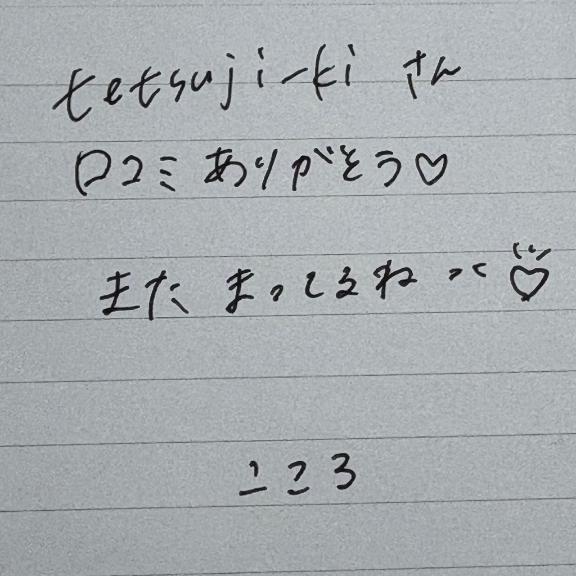 tetsuji-ki さん
口コミ ありがとう♡
また まってるね ♡
こころ